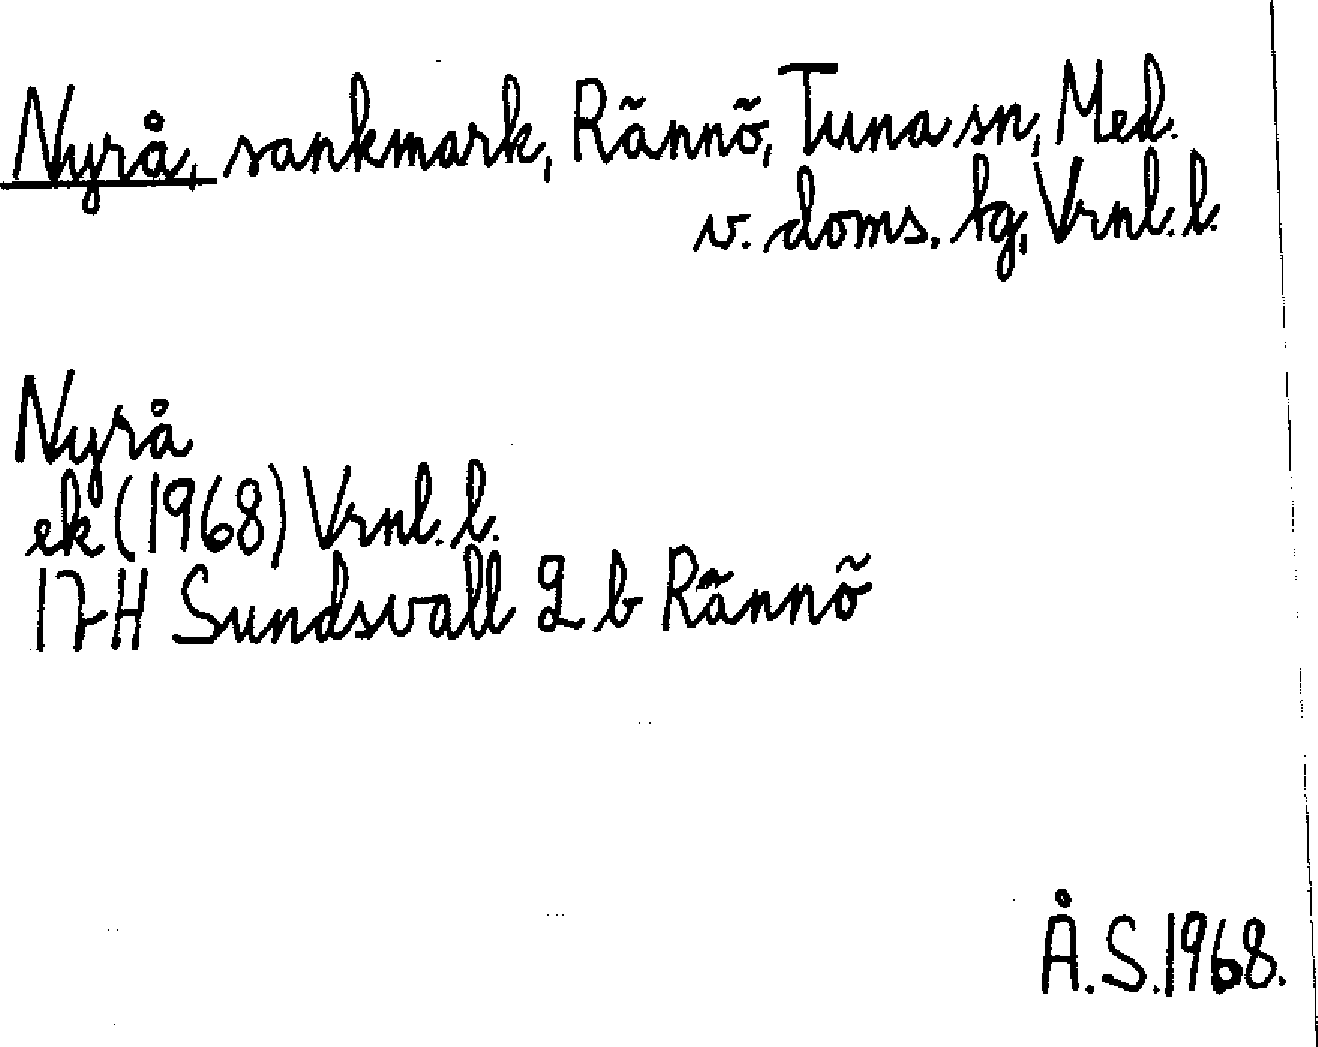 Nyrå, sankmark, Rännö, Tuna sn, Med.
v. doms. tg, Vrnl. l.
Nyrå
ek (1968) Vrnl. l.
17H Sundsvall 2 b Rännö
Å.S. 1968.